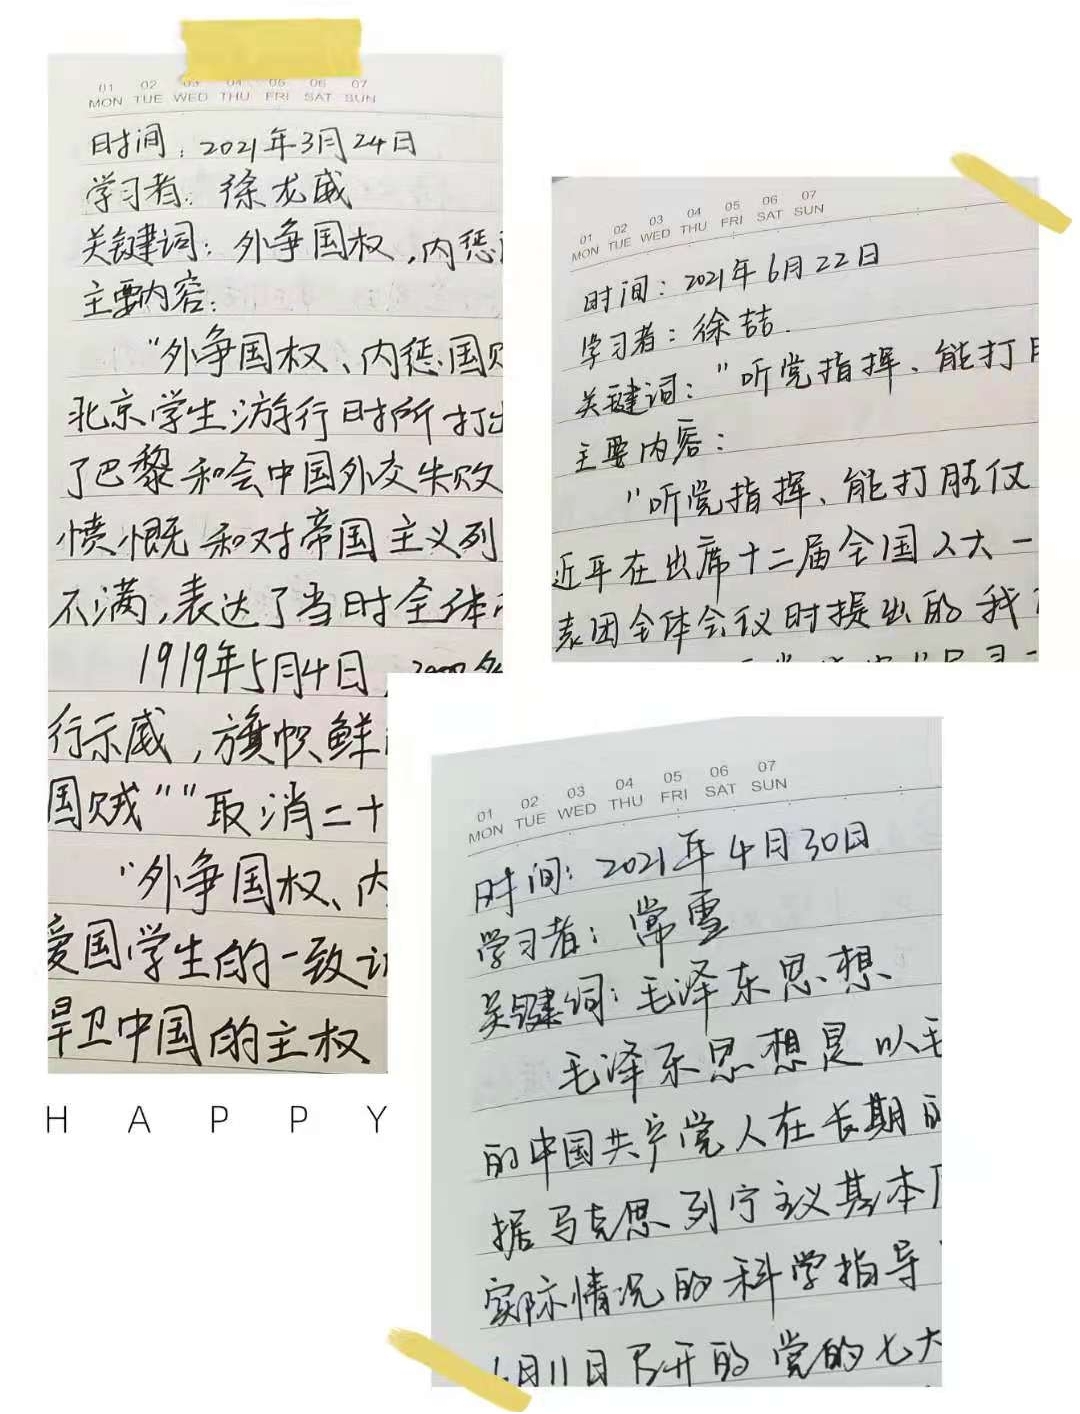 01 02 03 04 05 06 07
MON TUE WED THU FRI SAT SUN
时间：2021年3月24日
学习者：徐龙威
关键词：外争国权，内惩
主要内容：
“外争国权、内惩国
北京学生游行时所打出
了巴黎和会中国外交失败
愤慨和对帝国主义列
不满，表达了当时全体
1919年5月4日，
行示威，旗帜鲜
国贼”“取消二十
“外争国权、内
爱国学生的一致
捍卫中国的主权
HAPPY
01 02 03 04 05 06 07
MON TUE WED THU FRI SAT SUN
时间：2021年6月22日
学习者：徐喆
关键词：“听党指挥、能打
主要内容：
“听党指挥、能打胜仗
近平在出席十二届全国人大一
表团全体会议时提出的我
01 02 03 04 05 06 07
MON TUE WED THU FRI SAT SUN
时间：2021年4月30日
学习者：常雪
关键词：毛泽东思想
毛泽东思想是以毛
的中国共产党人在长期
据马克思列宁主义基本
实际情况的科学指导
月11日召开的党的七大